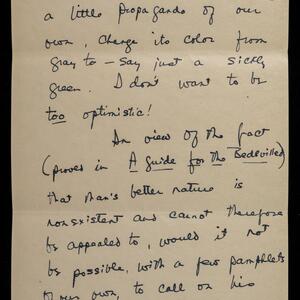 a little propaganda of our
own, change its color from
gray to — say just a sickly
green. I don't want to be
too optimistic!
In view of the fact
(proved in A Guide for the Bedevilled)
that man's better nature is
nonexistent and cannot therefore
be appealed to, would it not
be possible, with a few pamphlets
of our own, to call on his